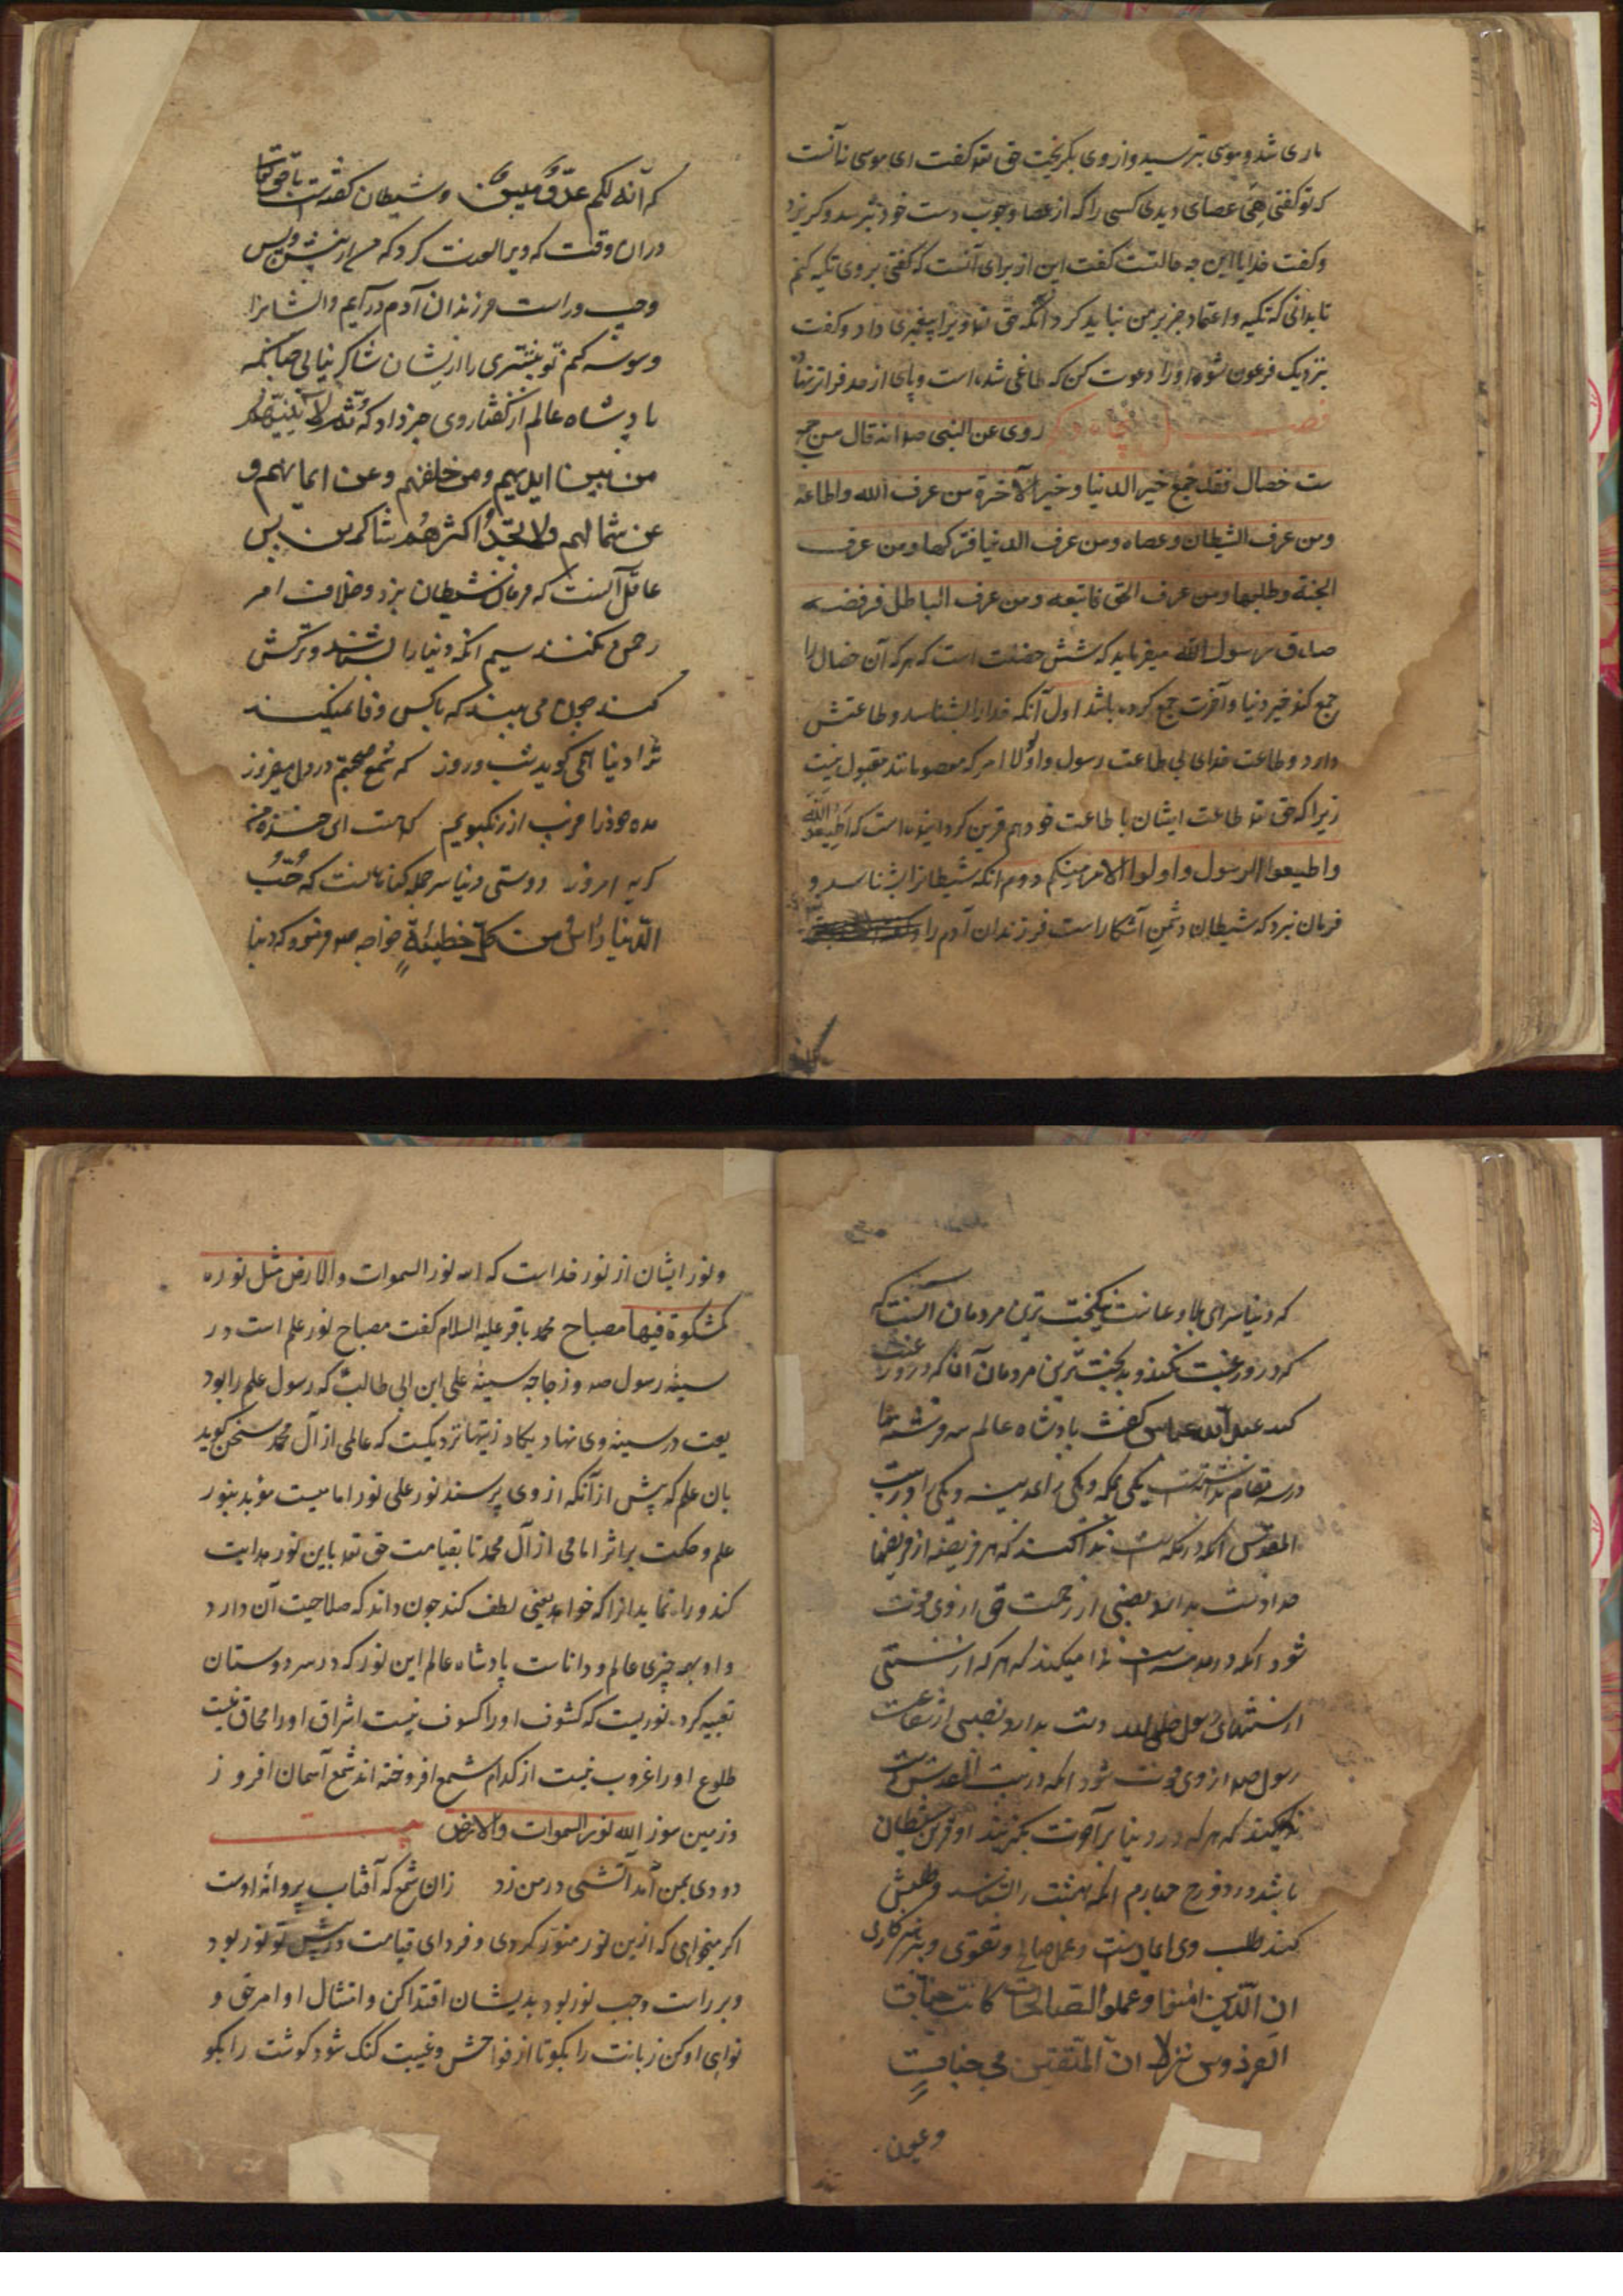 ماری شد و موسی بترسید و از وی بگریخت حق تعه گفت ای موسی نه آنست
که تو گفتی هی عصای دیدی کسی را که از عصا و چوب دست خود بترسد و گریزد
و گفت خدایا این چه حالتست گفت این از برای آنست که گفتی بر وی تکیه کنم
تا بدانی که تکیه و اعتماد جز بر من نباید کرد آنگه حق تعه ویرا پیغمبری داد و گفت
بنزدیک فرعون شو و او را دعوت کن که طاغی شده است و پای از حد فراتر نهاد
فصل روی عن النبی صه انه قال من جمع
ست خصال فقد جمع خیر الدنیا و خیر الآخرة من عرف الله و اطاعه
ومن عرف الشیطان وعصاه ومن عرف الدنیا فترکها ومن عرف
الجنة وطلبها ومن عرف الحق فاتبعه ومن عرف الباطل فرفضه
صادق رسول الله میفرماید که شش خصلت است که هر که آن خصال را
جمع کند خیر دنیا و آخرت جمع کرده باشد اول آنکه خدا را بشناسد و طاعتش
دارد و طاعت خدای بی طاعت رسول و اولا امر که معصومانند مقبول نیست
زیرا که حق تعه طاعت ایشان با طاعت خود هم قرین گردانیده است که اطیعوا الله
و اطیعوا الرسول و اولوا الامر منکم دوم انکه شیطانرا بشناسد و
فرمان نبرد که شیطان دشمن آشکاراست فرزندان آدم را
که انه لکم عدو مبین و شیطان گفته است باحق تعالی
دران وقت که ویرا لعنت کرد که من از پیش و پس
و چپ و راست فرزندان آدم درآیم و ایشانرا
وسوسه کنم تو بیشتری را ازیشان شاکر نیابی چنانکه
پادشاه عالم از گفتار وی خبر داد که ثم لآتینهم
من بین ایدیهم ومن خلفهم وعن ایمانهم و
عن شمائلهم ولا تجد اکثرهم شاکرین پس
عاقل آنست که فرمان شیطان نبرد و خلاف امر
رحمن نکند سیم انکه دنیا را بشناسد و ترکش
کند چون می بیند که باکس وفا نمیکند
ترا دنیا همی گوید شب و روز که شمع صحبتم در دل میفروز
مده خود را فریب از رنگ و بویم که هست این خنده من
گریه امروز دوستی دنیا سر جمله گناهانست که حب
الدنیا رأس کل خطیئة خواجه صه فرمود که دنیا
که دنیا سرای بلا و عناست نیکبخت ترین مردمان آنست که
که در و رغبت نکند و بدبخت ترین مردمان آنها که در و رغبت
کند عبدالله عباس گفت پادشاه عالم سه فرشته را
در سه مقام یکی بمکه و یکی بمدینه و یکی را در بیت
المقدس آنکه در مکه است ندا کند که هر فریضه از فریضها
خدا دست بدارد نصیبی از رحمت حق از وی فوت
شود آنکه در مدینه است ندا میکند که هر که از سنتی
از سنتهای رسول صلی الله دست بدارد نصیبی از شفاعت
رسول صه از وی فوت شود آنکه در بیت المقدس است
ندا میکند که هر که در دنیا بر آخرت بگزیند او قرین شیطان
باشد در دوزخ چهارم آنکه بهشت را بشناسد و طلبش
کند طلب وی ایمانست و عمل صالح و تقوی و پرهیزکاری
ان الذین امنوا وعملوا الصالحات کانت جنات
الفردوس نزلا ان المتقین فی جنات
وعیون
و نور ایشان از نور خداست که الله نور السموات والارض مثل نوره
کمشکوة فیها مصباح محمد باقر علیه السلام گفت مصباح نور علم است در
سینه رسول صه و زجاجه سینه علی ابن ابی طالب که رسول علم را بود
یعت در سینه وی نهاد یکاد زیتها نزدیکست که عالمی از آل محمد سخن گوید
بان علم که پیش از آنکه از وی پرسند نور علی نور امامیست مؤید بنور
علم و حکمت بر اثر امامی از آل محمد تا بقیامت حق تعه باین نور هدایت
کند و راه نماید انرا که خواهد یعنی لطف کند چون داند که صلاحیت آن دارد
و او بهمه چیزی عالم و داناست پادشاه عالم این نور که در سر دوستان
تعبیه کرده نوریست که کشوف او را کسوف نیست اشراق او را محاق نیست
طلوع او را غروب نیست از کدام شمع افروخته اند شمع آسمان افروز
و زمین سوز الله نور السموات والارض
دودی بمن آمد آتشی در من زد زان شمع که آفتاب پروانه اوست
اکر میخواهی که ازین نور منور کردی و فردای قیامت در پیش تو نور بود
و بر راست و چپ نور بود بدیشان اقتدا کن و امتثال اوامر حق و
نواهی او کن زبانت را بکو تا از فواحش و غیبت گنگ شود کوشت را بکو